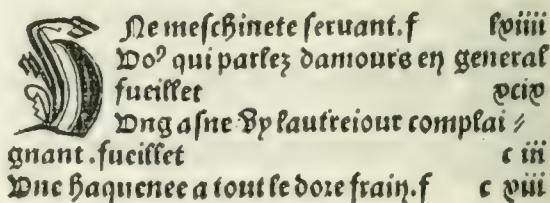 Vne meschinete seruant.f lxiiii
Voꝰ qui parlez damours en general
fueillet xcix
Vng asne vy lautreiour complai⸗
gnant.fueillet c iii
Vne haquenee a tout le dore frain.f c xiii